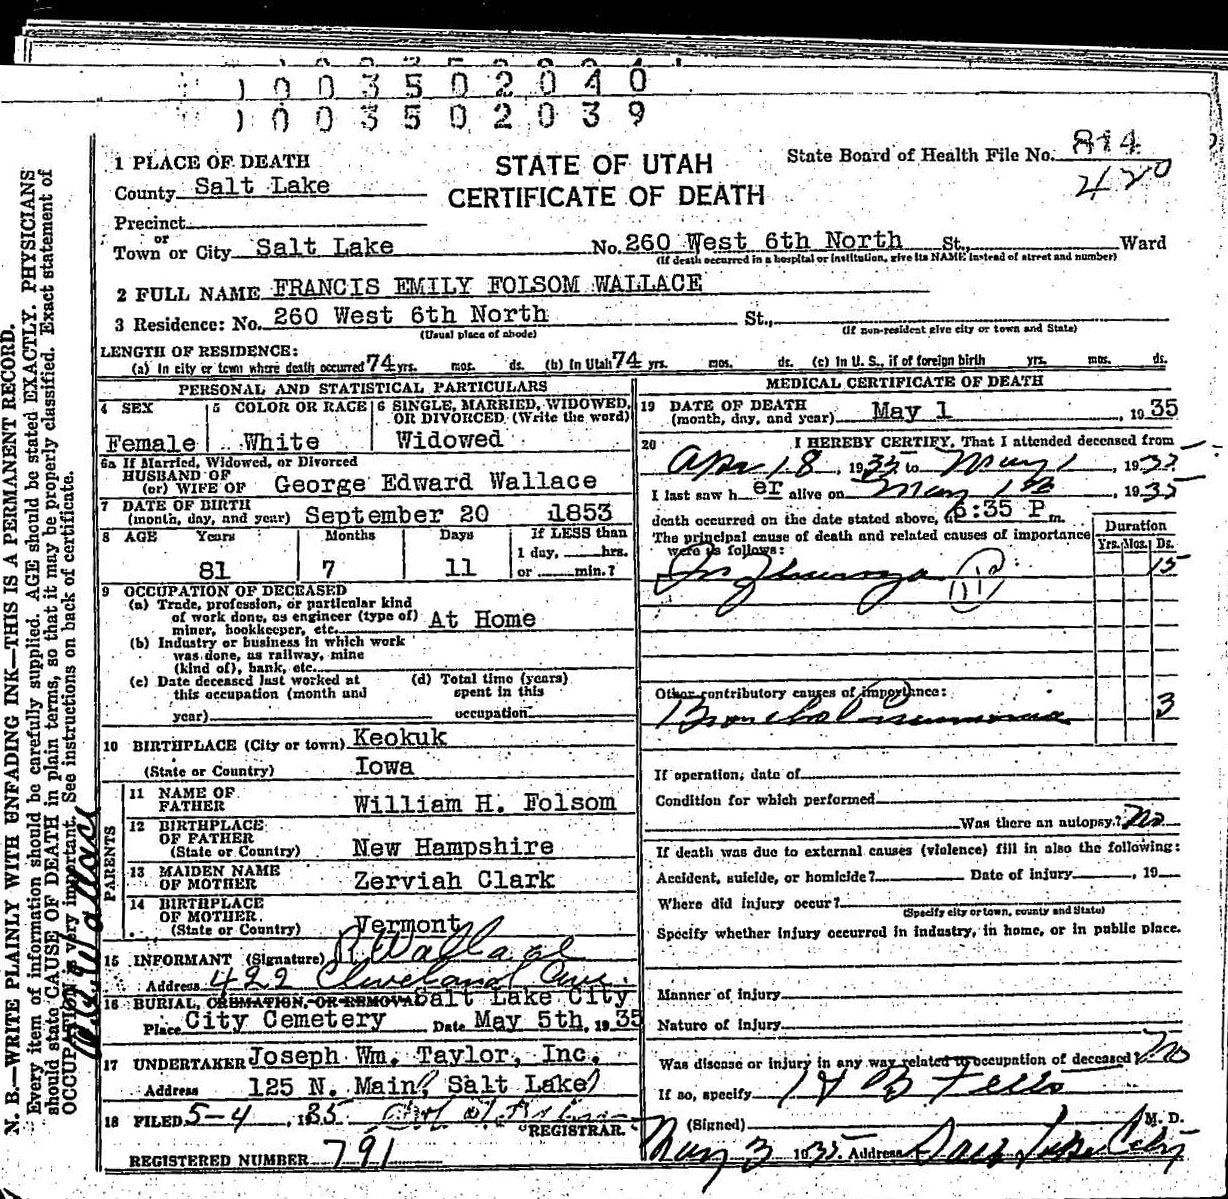 1003502040
1003502039
1 PLACE OF DEATH
STATE OF UTAH
CERTIFICATE OF DEATH
State Board of Health File No. 814
420
County Salt Lake
Precinct
or
Town or City Salt Lake No. 260 West 6th North St., Ward
(If death occurred in a hospital or institution, give its NAME instead of street and number)
2 FULL NAME FRANCIS EMILY FOLSOM WALLACE
3 Residence: No. 260 West 6th North St.,
(Usual place of abode) (If non-resident give city or town and State)
LENGTH OF RESIDENCE:
(a) In city or town where death occurred 74 yrs. mos. ds. (b) In Utah 74 yrs. mos. ds. (c) In U. S., if of foreign birth yrs. mos. ds.
PERSONAL AND STATISTICAL PARTICULARS
4 SEX 5 COLOR OR RACE 6 SINGLE, MARRIED, WIDOWED, OR DIVORCED (Write the word)
Female White Widowed
6a If Married, Widowed, or Divorced
HUSBAND OF
(or) WIFE OF George Edward Wallace
7 DATE OF BIRTH
(month, day, and year) September 20 1853
8 AGE Years Months Days If LESS than
1 day, hrs.
81 7 11 or min.?
9 OCCUPATION OF DECEASED
(a) Trade, profession, or particular kind
of work done, as engineer (type of)
miner, bookkeeper, etc. At Home
(b) Industry or business in which work
was done, as railway, mine
(kind of), bank, etc.
(c) Date deceased last worked at
this occupation (month and
year)
(d) Total time (years)
spent in this
occupation
10 BIRTHPLACE (City or town) Keokuk
(State or Country) Iowa
PARENTS
11 NAME OF
FATHER William H. Folsom
12 BIRTHPLACE
OF FATHER
(State or Country) New Hampshire
13 MAIDEN NAME
OF MOTHER Zerviah Clark
14 BIRTHPLACE
OF MOTHER
(State or Country) Vermont
15 INFORMANT (Signature) R Wallace
Address 422 Cleveland Ave.
16 BURIAL, CREMATION, OR REMOVAL Salt Lake City
Place City Cemetery Date May 5th, 1935
17 UNDERTAKER Joseph Wm. Taylor, Inc.
Address 125 N. Main, Salt Lake
18 FILED 5-4, 1935
REGISTRAR.
REGISTERED NUMBER 791
MEDICAL CERTIFICATE OF DEATH
19 DATE OF DEATH
(month, day, and year) May 1, 1935
20 I HEREBY CERTIFY, That I attended deceased from
Apr 18, 1935 to May 1, 1935
I last saw h er alive on May 1st, 1935
death occurred on the date stated above, at 6:35 P m.
The principal cause of death and related causes of importance
were as follows:
Duration
Yrs. Mos. Ds.
Influenza 15
Other contributory causes of importance:
Bronchial Pneumonia 3
If operation, date of
Condition for which performed
Was there an autopsy? No
If death was due to external causes (violence) fill in also the following:
Accident, suicide, or homicide? Date of injury , 19
Where did injury occur?
(Specify city or town, county and State)
Specify whether injury occurred in industry, in home, or in public place.
Manner of injury
Nature of injury
Was disease or injury in any way related to occupation of deceased? No
If so, specify
(Signed) M. D.
May 3 1935 Address Salt Lake City
N. B.—WRITE PLAINLY WITH UNFADING INK—THIS IS A PERMANENT RECORD.
Every item of information should be carefully supplied. AGE should be stated EXACTLY. PHYSICIANS
should state CAUSE OF DEATH in plain terms, so that it may be properly classified. Exact statement of
OCCUPATION is very important. See instructions on back of certificate.